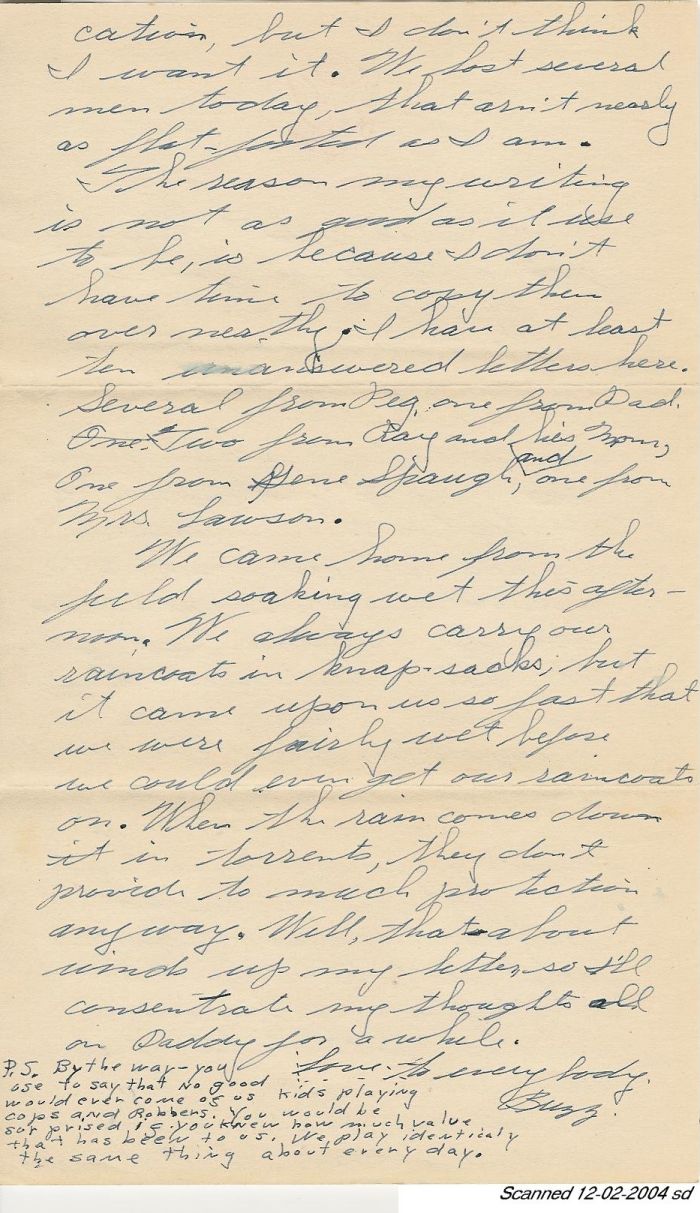 cation, but I don't think
I want it. We lost several
men today, that arn't nearly
as flat-footed as I am.
The reason my writing
is not as good as it use
to be, is because I don't
have time to copy them
over neatly. I have at least
ten unanswered letters here.
Several from Peg, one from Dad.
One Two from Ray and his Mom,
One from Gene Spaugh, and one from
Mrs. Lawson.
We came home from the
field soaking wet this after-
noon. We always carry our
raincoats in knap-sacks, but
it came upon us so fast that
we were fairly wet before
we could even get our raincoats
on. When the rain comes down
it in torrents, they don't
provide to much protection
anyway. Well, that about
winds up my letter so I'll
consentrate my thoughts all
on Daddy for a while.
Love to everybody.
Buzz.
P.S. By the way - you
use to say that no good
would ever come of us kids playing
cops and Robbers. You would be
surprised if you knew how much value
that has been to us. We play identicaly
the same thing about every day.
Scanned 12-02-2004 sd